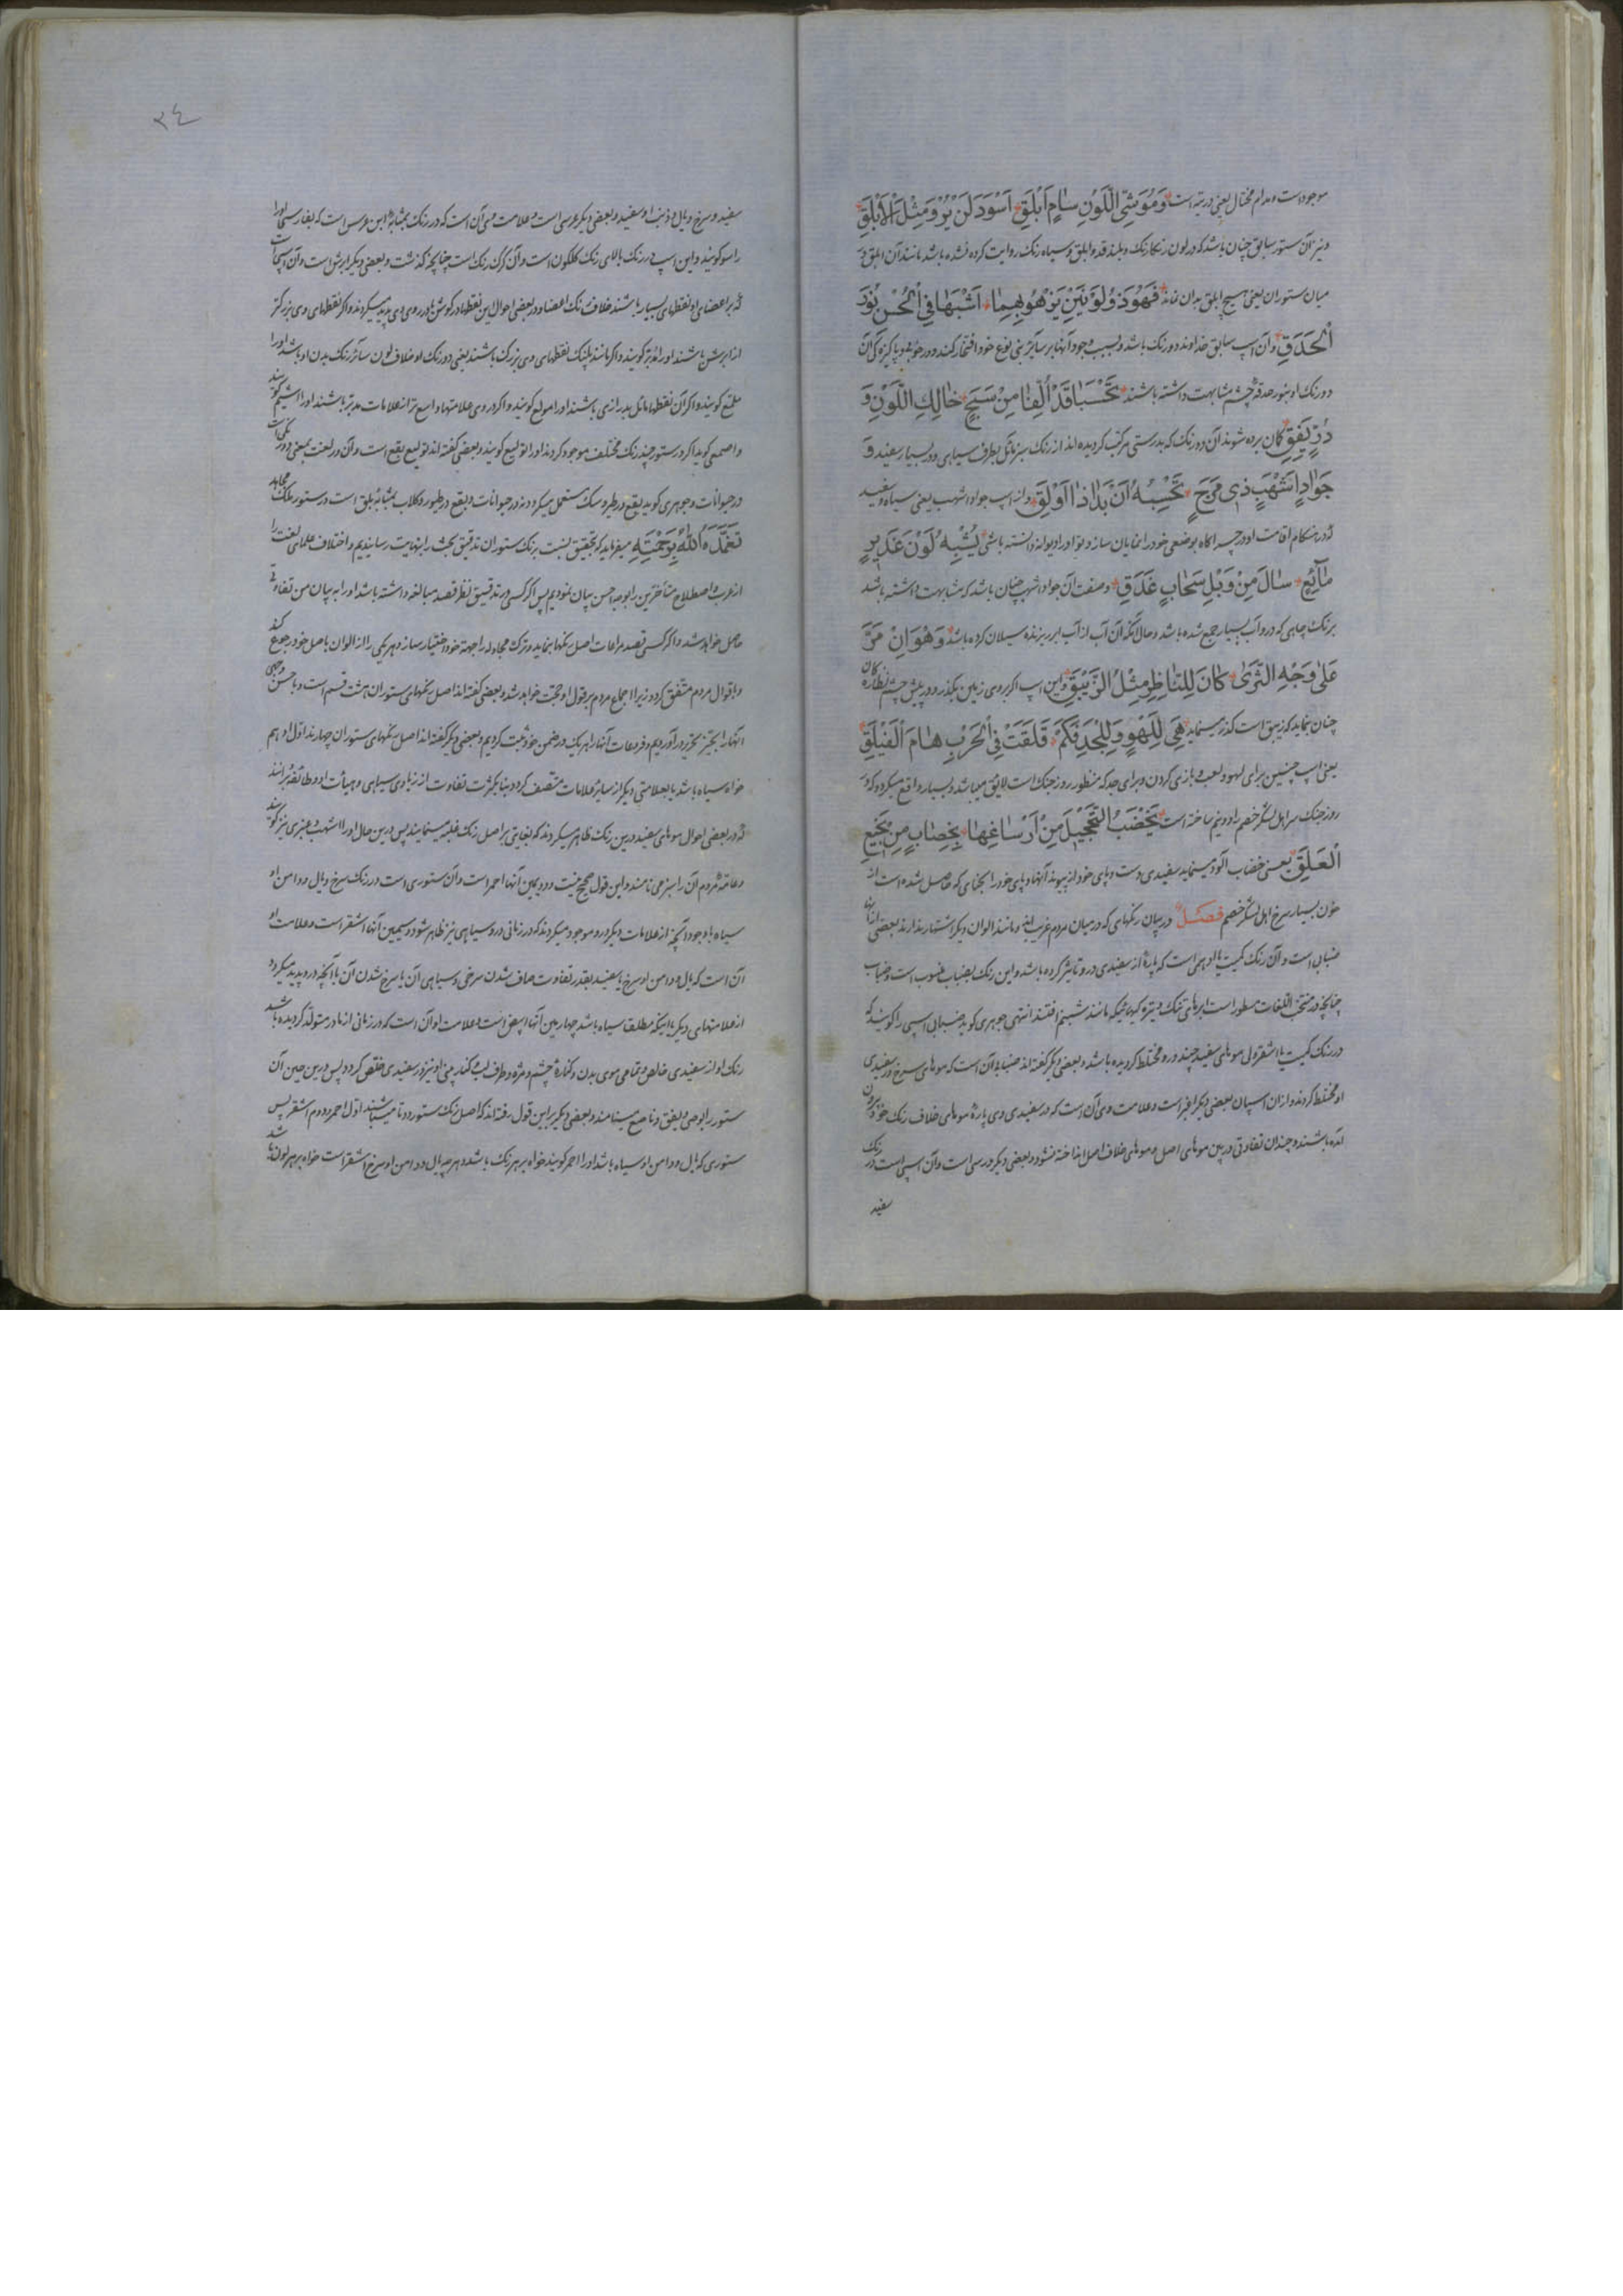 موجود است و مدام مختال یعنی در تیه است وَمُوَشِّی اللَّوْنِ سٰامٍ اَبْلَقٍ اَسْوَدَ لَنْ یُرْوَ مِثْلَ الْاَبْلَقِ
و نیز آن ستور سابق چنان باشد که در لون رنگارنک و بلند قد و ابلق و سیاه رنک روایت کرده نشده باشد مانند آن ابلق در
میان ستوران یعنی هیچ ابلق بدان نماند فَهُوَ ذُو لَوْنَیْنِ یَزْهُو بِهِمٰا اَشْبَهَا فِی الْحُسْنِ نُوْرَ
الْحَدَقِ و آن اسپ سابق خداوند دو رنک باشد و بسبب وجود آنها بر سایر بنی نوع خود افتخار کند و در خوبی و پاکیزه کی آن
دو رنک او بنور حدقهٔ چشم مشابهت داشته باشند تُحْسَبٰا قَدْ اُلِّفٰا مِنْ سَبَجٍ حٰالِكِ اللَّوْنِ وَ
دُرٍّ یَقَقٍ کمان برده شوند آن دو رنک که بدرستی مرکب کردیده اند از رنک سبز مائل بطرف سیاهی و در بسیار سفید وَ
جَوٰادٍ اَشْهَبٍ ذِی مَرَحٍ تَحْسِبُهُ اَنْ بَدٰا ذٰا اَوْلَقٍ و از اسپ جواد اشهب یعنی سیاه و سفید
که در هنکام اقامت او در چراکاه بوضعی خود را نمایان سازد تو او را دیوانه دانسته باشی یُشْبِهُ لَوْنَ غَدِیْرٍ
مٰائِعٍ سٰالَ مِنْ وَبْلِ سَحٰابٍ غَدَقٍ و صفت آن جواد اشهب چنان باشد که مشابهت داشته باشد
برنک چاهی که در و آب بسیار جمع شده باشد و حال آنکه آن آب از آب ابر ریزنده سیلان کرده باشد وَهُوَ اِنْ مَرَّ
عَلٰی وَجْهِ الثَّرٰی کٰانَ لِلنّٰاظِرِ مِثْلَ الزَّیْبَقِ و این اسپ اکر بروی زمین بکذرد در پیش چشم نظاره کان
چنان نماید که زیبق است که در میسماید هِیَ لِلَّهْوِ وَلِلْجِدِّ فَکَمْ فَلَقَتْ فِی الْحَرْبِ هٰامَ الْفَیْلَقِ
یعنی اسپ چنین برای لهو و لعب و بازی کردن و برای جد که منظور روز جنک است لایق میباشد و بسیار واقع میکردد که در
روز جنک سر اهل لشکر خصم را دو نیم ساخته است یَخْضِبُ التَّحْجِیْلَ مِنْ اَرْسٰاغِهٰا بِخِضٰابٍ مِنْ نَجِیْعِ
الْعَلَقِ یعنی خضاب آلود مینماید سفیدی دست و پای خود از پیوند آنها و پای خود را بحنای که حاصل شده است از
خون بسیار سرخ اهل لشکر خصم فصل در بیان رنکهای که در میان مردم غریب اند و مانند الوان دیکر اشتهار ندارند بعضی از آنها
ضبابی است و آن رنک کمیت یا ادهمی است که پارهٔ از سفیدی در و تاثیر کرده باشد و این رنک بضباب منسوب است و ضباب
چنانچه در منتخب اللغات مسطور است ابرهای تنک و تیره که بمانند شبنم افتند انتهی جوهری کوید ضبابی اسپی را کویند که
در رنک کمیت یا اشقر ولی موهای سفید چند در و مختلط کردیده باشد و بعضی دیکر گفته اند ضبابی آن است که موهای سرخ در سفیدی
او مختلط کردند و از ان اسپان بعضی دیکر اغبر است و علامت وی آن است که در سفیدی وی پارهٔ موهای خلاف رنک خود بیرون
آمده باشند و چندان تفاوتی در بین موهای اصل و موهای خلاف اصل انداخته نشود و بعضی دیکر درسی است و آن اسپی است در رنک
سفید
۲٤
سفید و سرخ و یال و ذنب او سفید و بعضی دیکر عرسی است و علامت وی آن است که در رنک بمثابهٔ ابن عرس است که بفارسی او را
راسو کویند و این اسپ در رنک بالای رنک کلکون است و آن کرک رنک است چنانچه کذشت و بعضی دیکر ابرش است و آن اسپی است
که بر اعضای او نقطهای بسیار باشند خلاف رنک اعضا و در بعضی احوال این نقطها در کوش یا در روی وی پدید میکردند و اکر نقطهای وی بزرکتر
از ابرش باشند او را مدنر کویند و اکر مانند پلنک نقطهای وی بزرک باشند یعنی دو رنک او خلاف لون سائر رنک بدن او باشد او را
ملمع کویند و اکر آن نقطها مائل بدرازی باشند او را مولع کویند و اکر در وی علامتها و اسیع تر از علامات مدنر باشند او را اشیم کویند
و اصمعی کوید اکر در ستور چند رنک مختلف موجود کردند او را تولیع کویند و بعضی کفته اند تولیع بقع است و آن در لغت بمعنی دو رنکی است
در حیوانات و جوهری کوید بقع در طیر و سک مستعمل میکردد نه در حیوانات و بقع در طیور و کلاب بمثابهٔ بلق است در ستور ملک مجاهد
تَغَمَّدَهُ اللهُ بِرَحْمَتِهِ میفرماید که تحقیق نسبت برنک ستوران تدقیق بحث را بنهایت رسانیدیم و اختلاف علمای لغت را
از عرب و اصطلاح متأخرین را بوجه احسن بیان نمودیم پس اکر کسی در تدقیق نظر قصد مبالغه داشته باشد او را به بیان من تفاوتی
حاصل خواهد شد و اکر کسی قصد مراعات اصل رنکها بنماید و ترک مجادله را جهة خود اختیار سازد و هر یکی را از الوان باصل خود رجوع کند
و باقوال مردم متفق کردد زیرا اجماع مردم بر قول او حجت خواهد شد و بعضی کفته اند اصل رنکهای ستوران هشت قسم است و با حسن وجهی
آنها را بحیز تحریر در آوردیم و فروعات آنها را هر یک در ضمن خود ثبت کردیم و بعضی دیکر کفته اند اصل رنکهای ستوران چهارند اول ادهم
خواه سیاه باشد یا بعلامتی دیکر از سایر علامات متصف کردد بنا بکثرت تفاوت از زیادی سیاهی و هیأت او و طائفهٔ برانند
که در بعضی احوال موهای سفید در بین رنک ظاهر میکردند که بغایتی بر اصل رنک غلبه مینمایند پس در بین حال او را اشهب و عنبری نیز کویند
و عامهٔ مردم آن را سبز می نامند و این قول صحیح نیست و دویمین آنها احمر است و آن ستوری است در رنک سرخ و یال و دامن او
سیاه با وجود آنچه از علامات دیکر در و موجود میکردند که در زمانی در و سیاهی نیز ظاهر شود و سیمین آنها اشقر است و علامت او
آن است که یال و دامن او سرخ یا سفید بقدر تفاوت صاف شدن سرخی و سیاهی آن یا سرخ شدن آن با آنچه در و پدید میکردد
از علامتهای دیکر یا اینکه مطلقا سیاه باشد چهارمین آنها ابیض است و علامت او آن است که در زمانی از مادر متولد کردیده باشد
رنک او از سفیدی خالص و تمامی موی بدن و کنارهٔ چشم و مژه و طرف لب و کنار بینی او نیز در سفیدی خالص کردد پس در بین حین آن
ستور را بوصی و یقق و ناصع مینامند و بعضی دیکر بر این قول رفته اند که اصل رنک ستور دو تا میباشند اول احمر و دوم اشقر پس
ستوری که یال و دامن او سیاه باشد او را احمر کویند خواه بر هر رنک باشد و هر چه یال و دامن او سرخ اشقر است خواه بر هر لون باشد